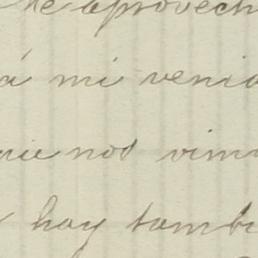 he aprovech
á mi venid
que nos vim
hay tambi